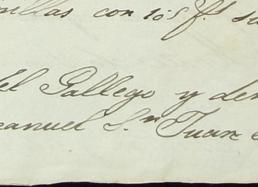 nillas con 105 f.s su
del Gallego y den
anuel S.n Juan